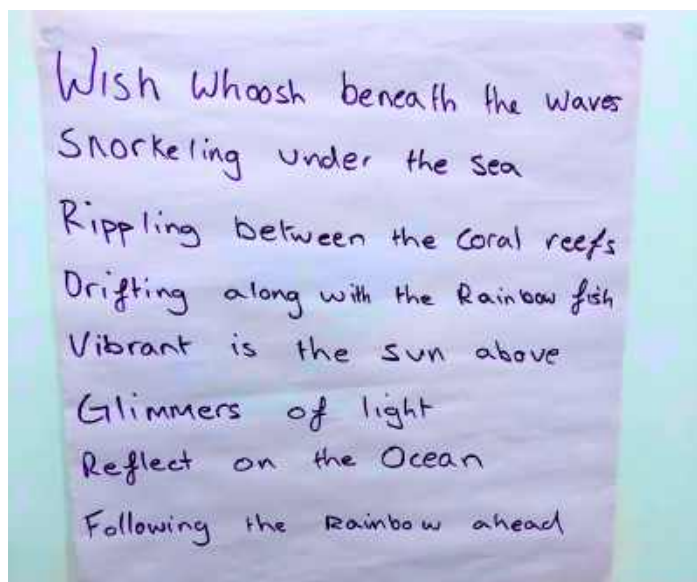 Wish Whoosh beneath the waves
Snorkeling under the sea
Rippling between the Coral reefs
Drifting along with the Rainbow fish
Vibrant is the sun above
Glimmers of light
Reflect on the Ocean
Following the Rainbow ahead